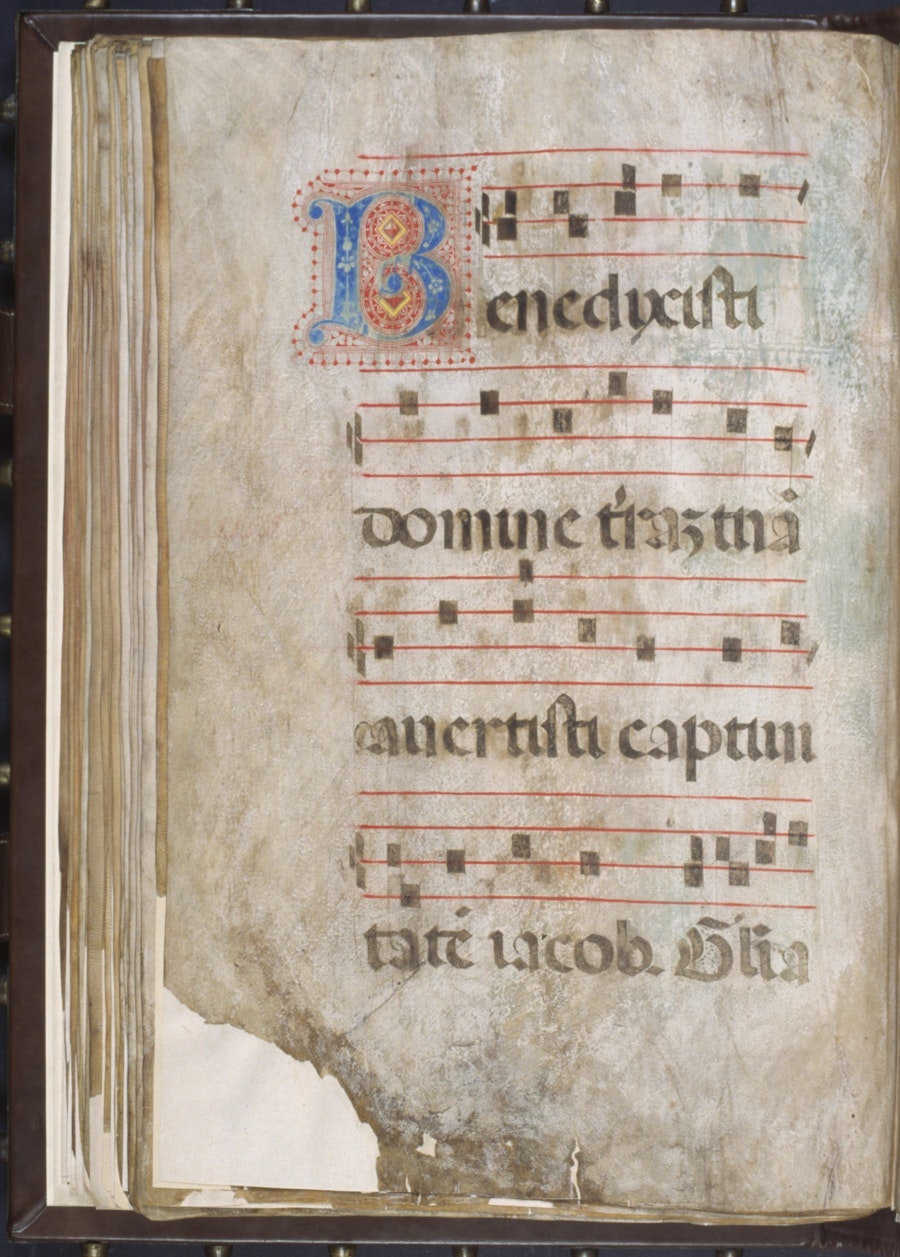 Benedixisti
domine t̄raz tuā
auertisti captiui
tatē iacob. Glīa